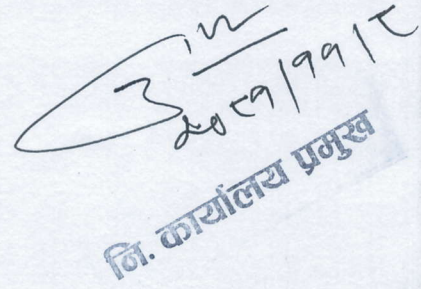 २०८१/११/८
नि. कार्यालय प्रमुख